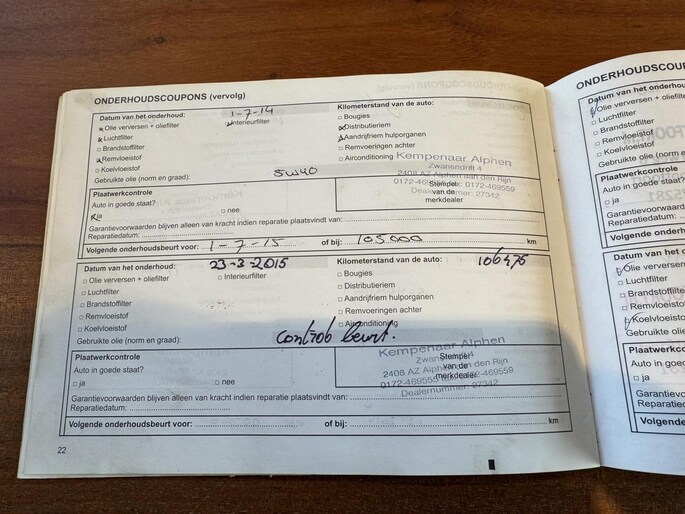 ONDERHOUDSCOUPONS (vervolg)
Datum van het onderhoud: 1-7-14
Olie verversen + oliefilter
Interieurfilter
Luchtfilter
Brandstoffilter
Remvloeistof
Koelvloeistof
Gebruikte olie (norm en graad): 5W40
Kilometerstand van de auto:
Bougies
Distributieriem
Aandrijfriem hulporganen
Remvoeringen achter
Airconditioning
Kempenaar Alphen
Zwanendrift 4
2408 AZ Alphen aan den Rijn
Stempel
van de
merkdealer
Dealernummer: 27342
Plaatwerkcontrole
Auto in goede staat?
ja
nee
Garantievoorwaarden blijven alleen van kracht indien reparatie plaatsvindt van:
Reparatiedatum:
Volgende onderhoudsbeurt voor: 1-7-15 of bij: 105000 km
Datum van het onderhoud: 23-3-2015
Olie verversen + oliefilter
Interieurfilter
Luchtfilter
Brandstoffilter
Remvloeistof
Koelvloeistof
Gebruikte olie (norm en graad):
Kilometerstand van de auto: 106475
Bougies
Distributieriem
Aandrijfriem hulporganen
Remvoeringen achter
Airconditioning
beurt.
Kempenaar Alphen
2408 AZ Alphen aan den Rijn
Stempel
van de
merkdealer
Dealernummer: 27342
Plaatwerkcontrole
Auto in goede staat?
ja
nee
Garantievoorwaarden blijven alleen van kracht indien reparatie plaatsvindt van:
Reparatiedatum:
Volgende onderhoudsbeurt voor: of bij: km
22
ONDERHOUDSCOUPONS
Datum van het onderhou
Olie verversen + oliefilter
Luchtfilter
Brandstoffilter
Remvloeistof
Koelvloeistof
Gebruikte olie (norm en gr
Plaatwerkcontrole
Auto in goede staat?
ja
Garantievoorwaarden b
Reparatiedatum:
Volgende onderh
Datum van het o
Olie verversen
Luchtfilter
Brandstoffilter
Remvloeisto
Koelvloeisto
Gebruikte olie
Plaatwerkc
Auto in goe
ja
Garantiev
Reparatie
Volgende